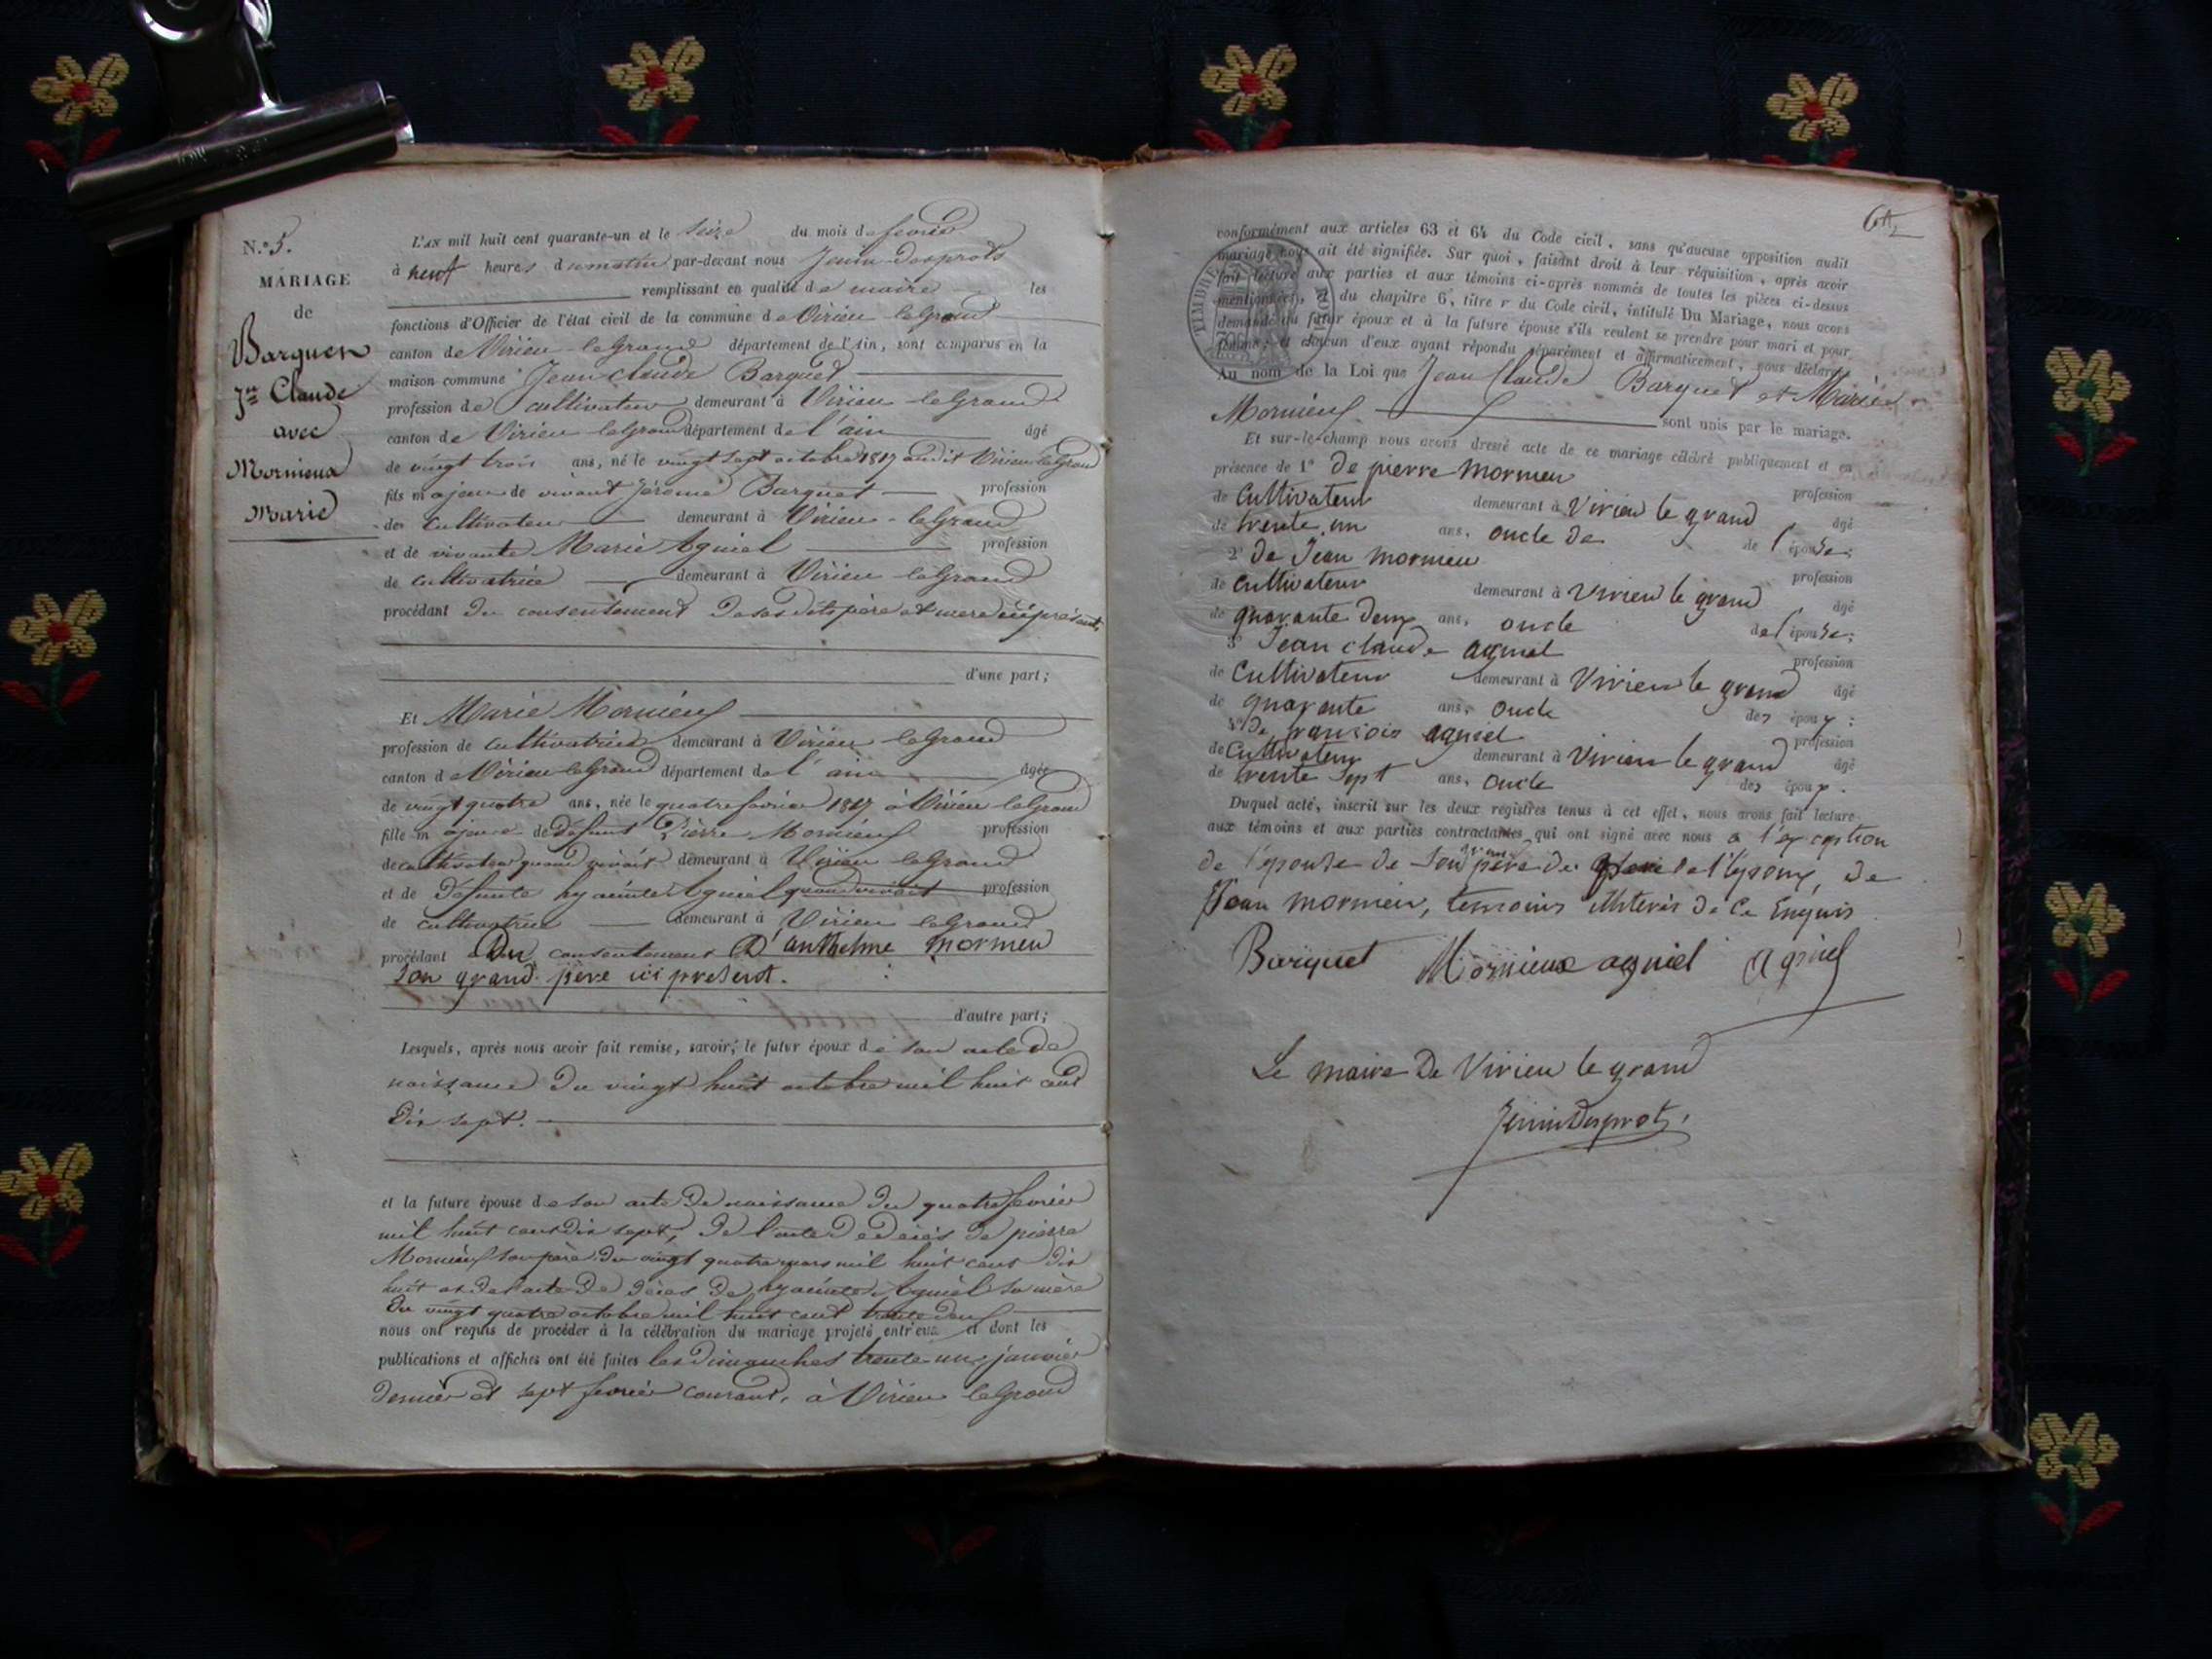 N.º 5.
MARIAGE
de
Barquet
Jn Claude
avec
Mornieux
Marie
L'an mil huit cent quarante-un et le seize du mois de fevrier
à neuf heures du matin par-devant nous Jenin Desprots
remplissant en qualité de maire les
fonctions d'Officier de l'état civil de la commune de Virieu le Grand
canton de Virieu le Grand département de l'Ain, sont comparus en la
maison commune Jean Claude Barquet
profession de cultivateur demeurant à Virieu le Grand
canton de Virieu le Grand département de l'ain âgé
de vingt trois ans, né le vingt sept octobre 1817 audit Virieu le Grand
fils majeur de vivant Jérome Barquet profession
de cultivateur demeurant à Virieu-le Grand
et de vivante Marie Agniel profession
de cultivatrice demeurant à Virieu le Grand
procédant du consentement de ses dits père et mere ici présents
d'une part;
Et Marie Mornieux
profession de cultivatrice demeurant à Virieu le Grand
canton de Virieu le Grand département de l'ain âgée
de vingt quatre ans, née le quatre fevrier 1817 à Virieu le Grand
fille majeure de défunt Pierre Mornieux profession
de cultivateur quand vivait demeurant à Virieu le Grand
et de défunte hyacinte Agniel quand vivait profession
de cultivatrice demeurant à Virieu le Grand
procédant du consentement D'anthelme mornieu
son grand père ici present.
d'autre part;
Lesquels, après nous avoir fait remise, savoir; le futur époux de son acte de
naissance du vingt huit octobre mil huit cent
dix sept.
et la future épouse de son acte de naissance du quatre fevrier
mil huit cent dix sept, de l'acte de décés de pierre
Mornieux son père du vingt quatre mars mil huit cent dix
huit et de l'acte de décés de hyacinte Agniel sa mère
du vingt quatre octobre mil huit cent trente deux
nous ont requis de procéder à la célébration du mariage projeté entr'eux et dont les
publications et affiches ont été faites les dimanches trente-un janvier
dernier et sept fevrier courant, à Virieu le Grand
conformément aux articles 63 et 64 du Code civil, sans qu'aucune opposition audit
mariage nous ait été signifiée. Sur quoi, faisant droit à leur réquisition, après avoir
fait lecture aux parties et aux témoins ci-après nommés de toutes les pièces ci-dessus
mentionnées, et du chapitre 6, titre v du Code civil, intitulé Du Mariage, nous avons
demandé au futur époux et à la future épouse s'ils veulent se prendre pour mari et pour
femme; et chacun d'eux ayant répondu séparément et affirmativement, nous déclarons
Au nom de la Loi que Jean Claude Barquet et Marie
Mornieux sont unis par le mariage.
Et sur-le-champ nous avons dressé acte de ce mariage célébré publiquement et en
présence de 1º De pierre mornieu
profession
de cultivateur demeurant à Virieu le grand âgé
de trente un ans, oncle de de l'épouse;
2º De Jean mornieu
profession
de cultivateur demeurant à Virieu le grand âgé
de quarante deux ans, oncle de l'épouse;
3º Jean claude agniel
profession
de cultivateur demeurant à Virieu le grand âgé
de quarante ans, oncle des époux;
4º De françois agniel
profession
de cultivateur demeurant à Virieu le grand âgé
de trente sept ans, oncle des époux.
Duquel acte, inscrit sur les deux registres tenus à cet effet, nous avons fait lecture
aux témoins et aux parties contractantes qui ont signé avec nous a l'exception
de l'épouse de son père de l'époux, de
Jean mornieu, temoins illiterés de ce Enquis
Barquet Mornieux agniel Agniel
Le maire De Virieu le grand
Jenin Desprots
TIMBRE ROYAL